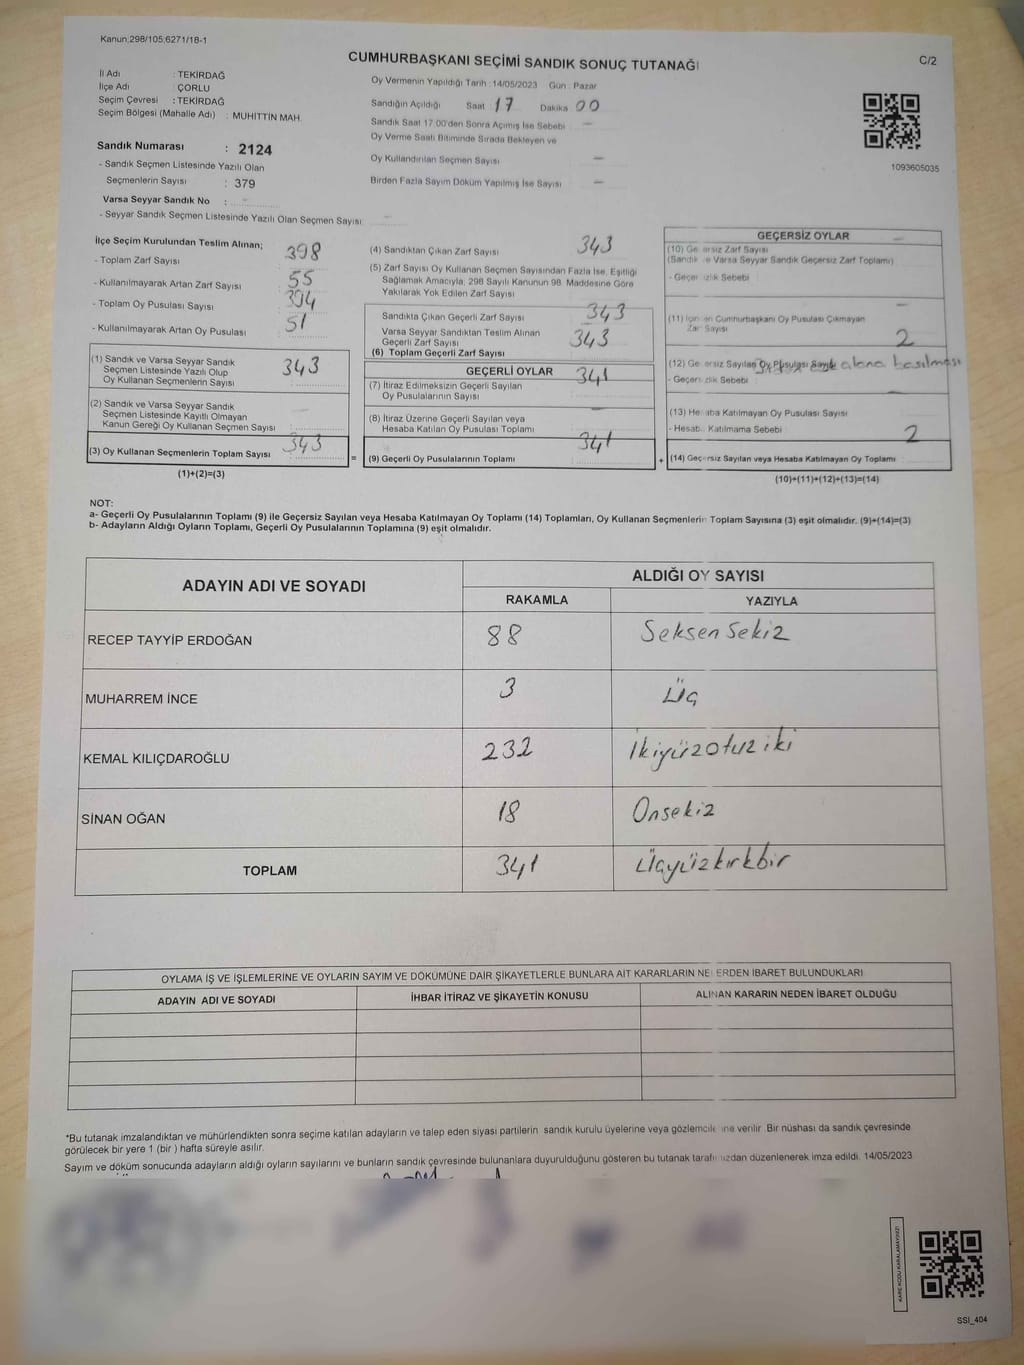 Kanun;298/105;6271/18-1
CUMHURBAŞKANI SEÇİMİ SANDIK SONUÇ TUTANAĞI
C/2
İl Adı : TEKİRDAĞ
İlçe Adı : ÇORLU
Seçim Çevresi : TEKİRDAĞ
Seçim Bölgesi (Mahalle Adı) : MUHİTTİN MAH.
Oy Vermenin Yapıldığı Tarih :14/05/2023 Gün : Pazar
Sandığın Açıldığı Saat 17 Dakika 00
Sandık Saat 17.00'den Sonra Açımış İse Sebebi : —
Oy Verme Saati Bitiminde Sırada Bekleyen ve
Oy Kullandırılan Seçmen Sayısı —
Birden Fazla Sayım Döküm Yapılmış İse Sayısı —
1093605035
Sandık Numarası : 2124
- Sandık Seçmen Listesinde Yazılı Olan
Seçmenlerin Sayısı : 379
Varsa Seyyar Sandık No : —
- Seyyar Sandık Seçmen Listesinde Yazılı Olan Seçmen Sayısı: —
İlçe Seçim Kurulundan Teslim Alınan;
- Toplam Zarf Sayısı : 398
- Kullanılmayarak Artan Zarf Sayısı : 55
- Toplam Oy Pusulası Sayısı : 394
- Kullanılmayarak Artan Oy Pusulası : 51
(1) Sandık ve Varsa Seyyar Sandık
Seçmen Listesinde Yazılı Olup
Oy Kullanan Seçmenlerin Sayısı : 343
(2) Sandık ve Varsa Seyyar Sandık
Seçmen Listesinde Kayıtlı Olmayan
Kanun Gereği Oy Kullanan Seçmen Sayısı : —
(3) Oy Kullanan Seçmenlerin Toplam Sayısı : 343
(1)+(2)=(3)
(4) Sandıktan Çıkan Zarf Sayısı 343
(5) Zarf Sayısı Oy Kullanan Seçmen Sayısından Fazla İse, Eşitliği
Sağlamak Amacıyla, 298 Sayılı Kanunun 98. Maddesine Göre
Yakılarak Yok Edilen Zarf Sayısı
Sandıkta Çıkan Geçerli Zarf Sayısı : 343
Varsa Seyyar Sandıktan Teslim Alınan
Geçerli Zarf Sayısı :
(6) Toplam Geçerli Zarf Sayısı : 343
GEÇERLİ OYLAR
(7) İtiraz Edilmeksizin Geçerli Sayılan
Oy Pusulalarının Sayısı : 341
(8) İtiraz Üzerine Geçerli Sayılan veya
Hesaba Katılan Oy Pusulası Toplamı : —
= (9) Geçerli Oy Pusulalarının Toplamı : 341
GEÇERSİZ OYLAR
(10) Geçersiz Zarf Sayısı —
(Sandık ve Varsa Seyyar Sandık Geçersiz Zarf Toplamı)
- Geçersizlik Sebebi :
(11) İçinden Cumhurbaşkanı Oy Pusulası Çıkmayan
Zarf Sayısı —
(12) Geçersiz Sayılan Oy Pusulası Sayısı 2
- Geçersizlik Sebebi : alana basılması
(13) Hesaba Katılmayan Oy Pusulası Sayısı —
- Hesaba Katılmama Sebebi :
+ (14) Geçersiz Sayılan veya Hesaba Katılmayan Oy Toplamı : 2
(10)+(11)+(12)+(13)=(14)
NOT:
a- Geçerli Oy Pusulalarının Toplamı (9) ile Geçersiz Sayılan veya Hesaba Katılmayan Oy Toplamı (14) Toplamları, Oy Kullanan Seçmenlerin Toplam Sayısına (3) eşit olmalıdır. (9)+(14)=(3)
b- Adayların Aldığı Oyların Toplamı, Geçerli Oy Pusulalarının Toplamına (9) eşit olmalıdır.
ADAYIN ADI VE SOYADI ALDIĞI OY SAYISI
RAKAMLA YAZIYLA
RECEP TAYYİP ERDOĞAN 88 Seksen Sekiz
MUHARREM İNCE 3 Üç
KEMAL KILIÇDAROĞLU 232 İkiyüzotuz iki
SİNAN OĞAN 18 Onsekiz
TOPLAM 341 Üçyüzkırkbir
OYLAMA İŞ VE İŞLEMLERİNE VE OYLARIN SAYIM VE DÖKÜMÜNE DAİR ŞİKAYETLERLE BUNLARA AİT KARARLARIN NELERDEN İBARET BULUNDUKLARI
ADAYIN ADI VE SOYADI İHBAR İTİRAZ VE ŞİKAYETİN KONUSU ALINAN KARARIN NEDEN İBARET OLDUĞU
*Bu tutanak imzalandıktan ve mühürlendikten sonra seçime katılan adayların ve talep eden siyasi partilerin sandık kurulu üyelerine veya gözlemcilerine verilir. Bir nüshası da sandık çevresinde
görülecek bir yere 1 (bir ) hafta süreyle asılır.
Sayım ve döküm sonucunda adayların aldığı oyların sayılarını ve bunların sandık çevresinde bulunanlara duyurulduğunu gösteren bu tutanak tarafımızdan düzenlenerek imza edildi. 14/05/2023
KARE KODU KARALAMAYINIZ!
SSI_404